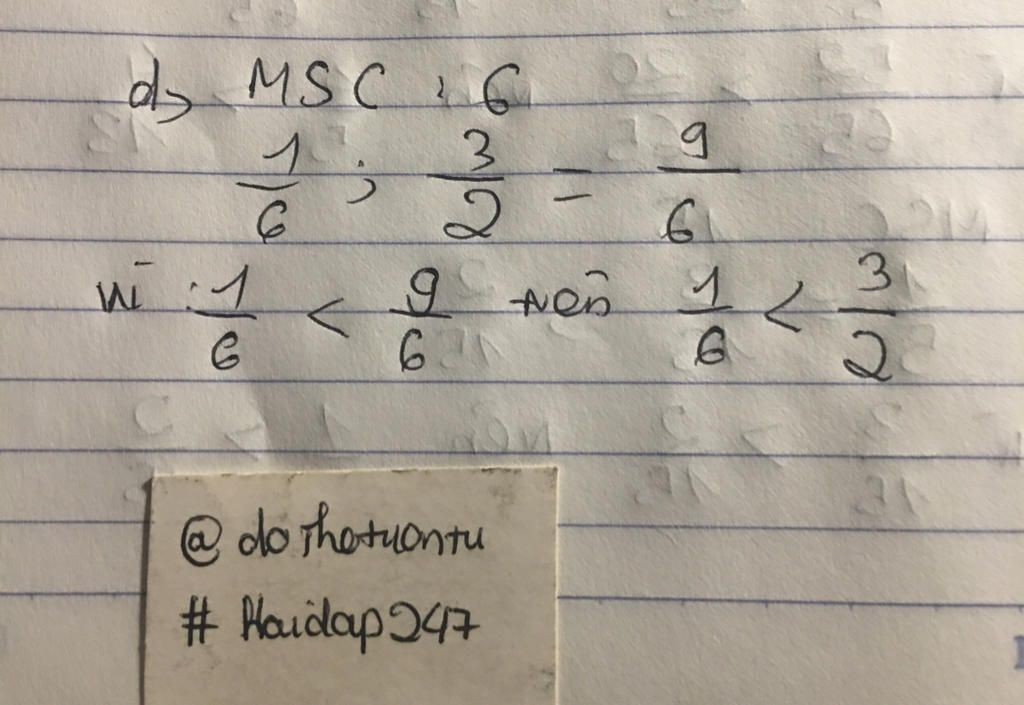 d, MSC : 6
1/6 ; 3/2 = 9/6
Vì : 1/6 < 9/6 nên 1/6 < 3/2
@dothetuantu
#Hoidap247